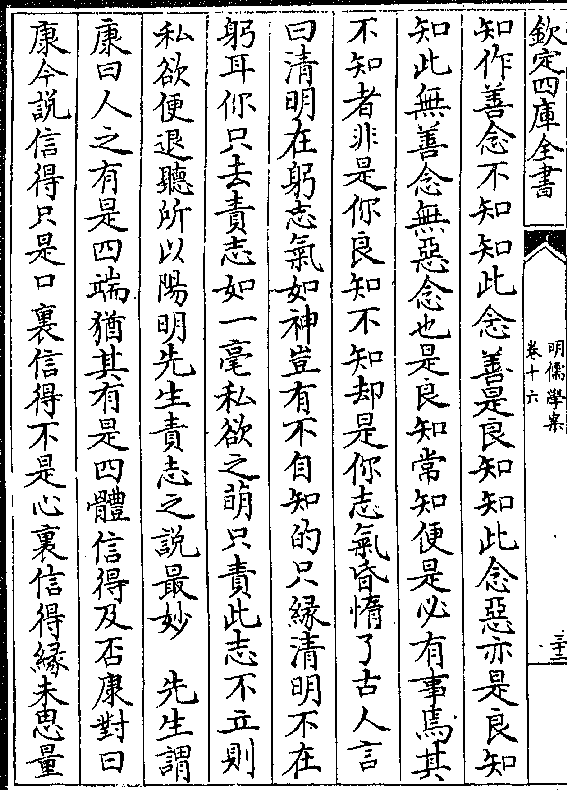 欽定四庫全書
明儒學案
卷十六
三十二
知作善念不知知此念善是良知知此念惡亦是良知
知此無善念無惡念也是良知常知便是必有事焉其
不知者非是你良知不知却是你志氣昏惰了古人言
曰清明在躬志氣如神豈有不自知的只縁清明不在
躬耳你只去責志如一毫私欲之萌只責此志不立則
私欲便退聽所以陽明先生責志之說最妙　先生謂
康曰人之有是四端猶其有是四體信得及否康對曰
康今說信得只是口裏信得不是心裏信得縁未思量